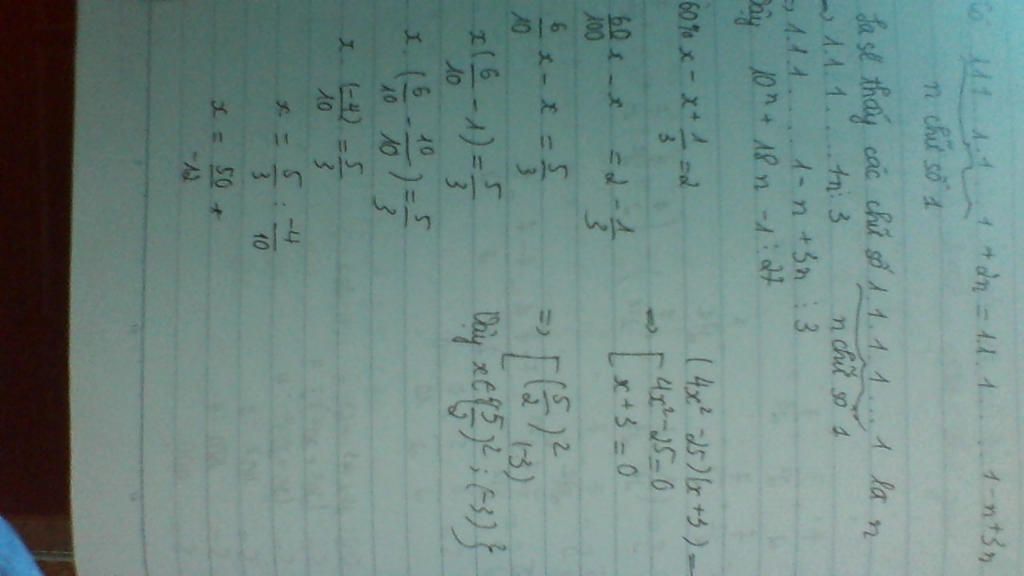 Có 11 1 1 ... 1 + 2n = 11 1 ... 1 - n + 3n
n chữ số 1
Ta sẽ thấy các chữ số 1 1 1 1 ... 1 là n
n chữ số 1
=> 1 1 1 ... 1n ⋮ 3
=> 1 1 1 ... 1 - n + 3n ⋮ 3
Vậy 10n + 18n - 1 ⋮ 27
60% x - x + 1/3 = 2
60/100 x - x = 2 - 1/3
6/10 x - x = 5/3
x (6/10 - 1) = 5/3
x . (6/10 - 10/10) = 5/3
x . (-4)/10 = 5/3
x = 5/3 : -4/10
x = 50/-12
(4x² - 25)(x + 3) =
=> [ 4x² - 25 = 0
x + 3 = 0
=> [ (5/2)²
(-3)
Vậy x ∈ {(5/2)² ; (-3)}